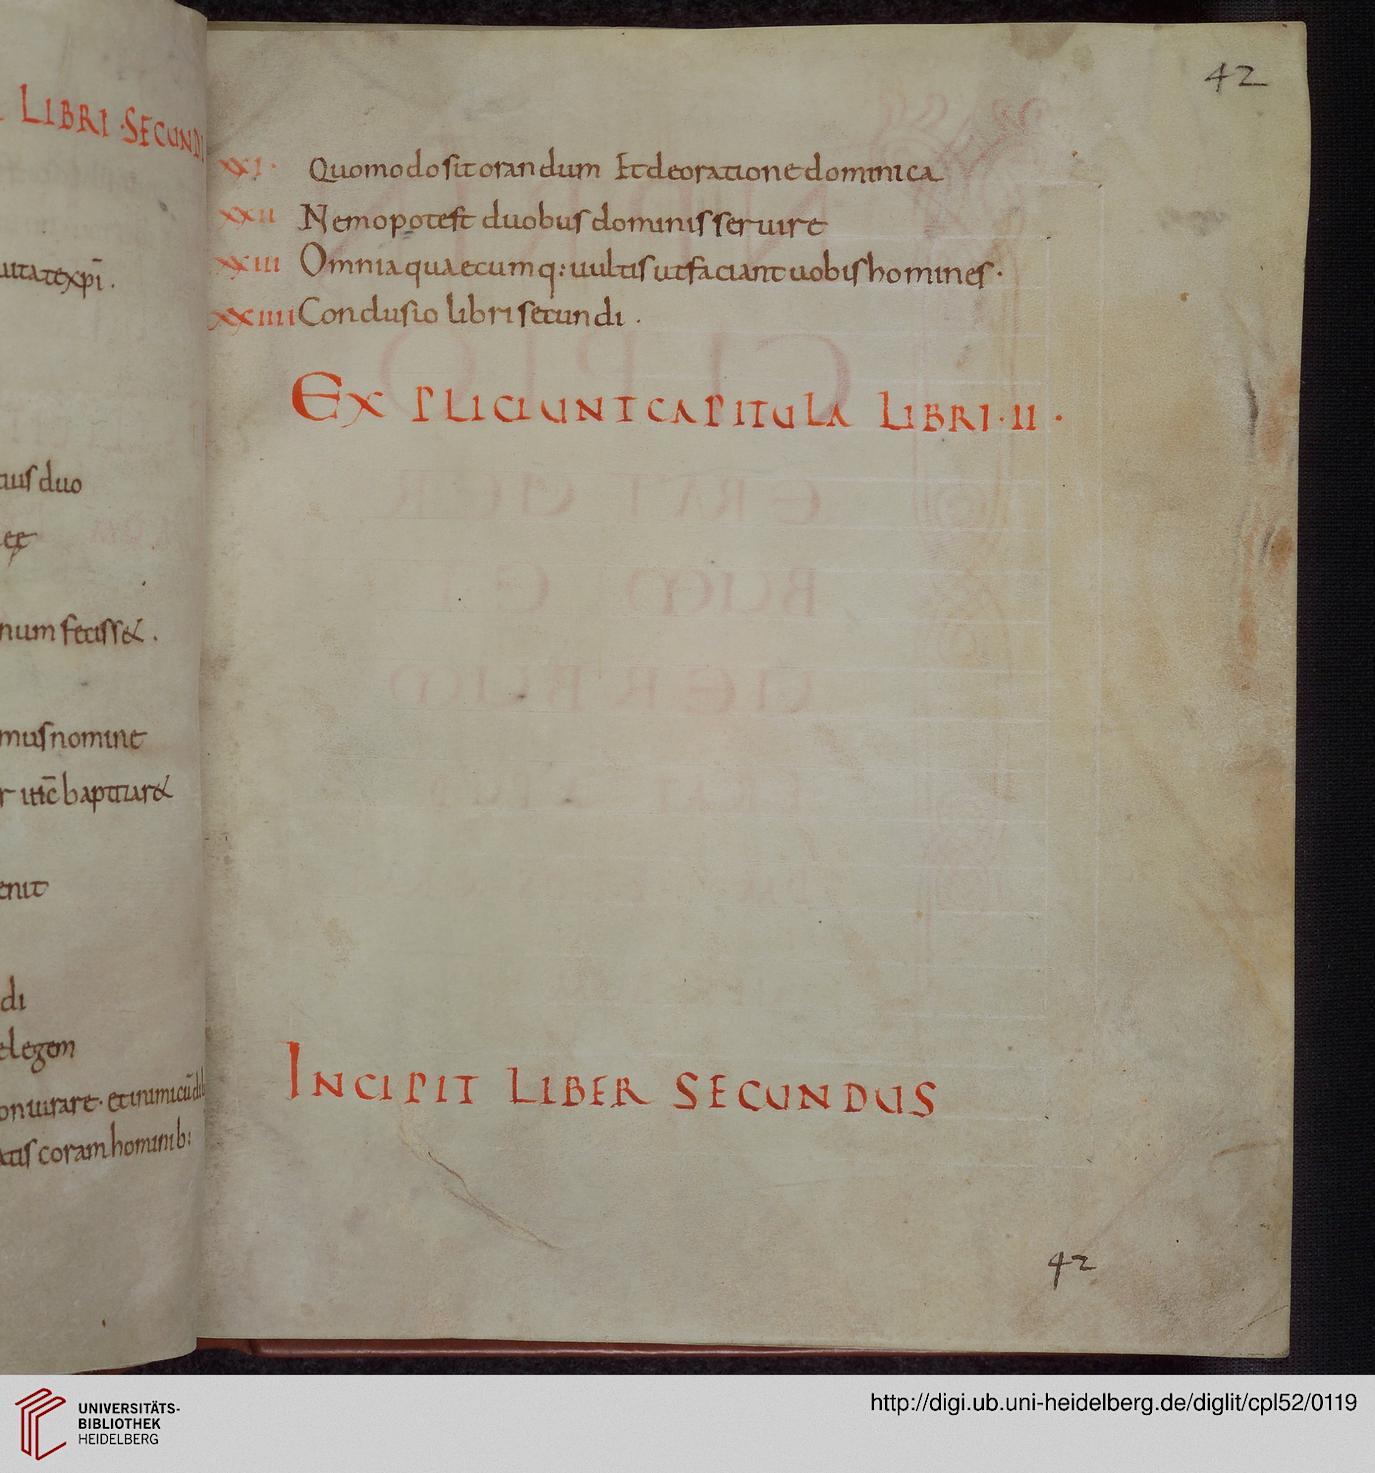 LIBRI · SECUNDI
uitatexpī .
duo
num fecisset .
mus nomine
baptizaret
enit
di
legem
coram hominib:
42
XXI · Quomodo sit orandum Et de oratione dominica
XXII Nemo potest duobus dominis seruire
XXIII Omnia quaecumq: uultis ut faciant uobis homines ·
XXIIII Conclusio libri secundi .
EXPLICIUNT CAPITULA LIBRI · II ·
INCIPIT LIBER SECUNDUS
42
UNIVERSITÄTS-
BIBLIOTHEK
HEIDELBERG
http://digi.ub.uni-heidelberg.de/diglit/cpl52/0119